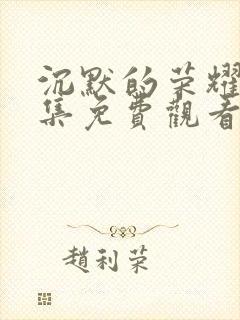 沉默的荣耀
集免費觀看
趙利荣